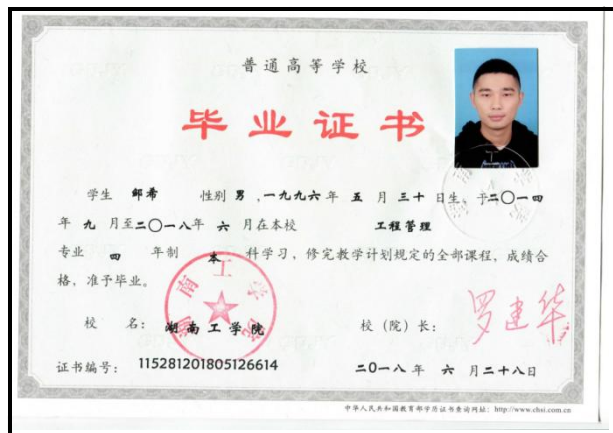 普通高等学校
毕业证书
学生 邹希 性别 男 ,一九九六 年 五 月 三十 日生、于二〇一四
年 九 月至二〇一八年 六 月在本校 工程管理
专业 四 年制 本 科学习，修完教学计划规定的全部课程，成绩合
格，准予毕业。
校 名： 湖南工学院
校（院）长： 罗建华
证书编号： 115281201805126614
二〇一八 年 六 月二十八日
中华人民共和国教育部学历证书查询网址：http://www.chsi.com.cn